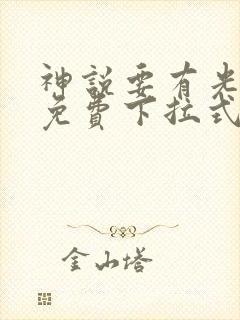 神說要有光
免費下拉式
金山塔